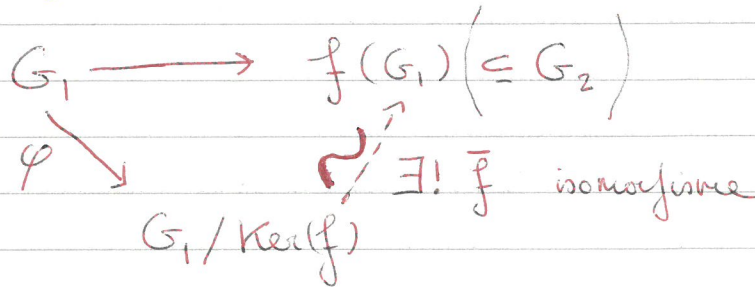 G₁ ⟶ f(G₁) (⊆ G₂)
φ ∼ ∃! f̄ isomorfisme
G₁/Ker(f)